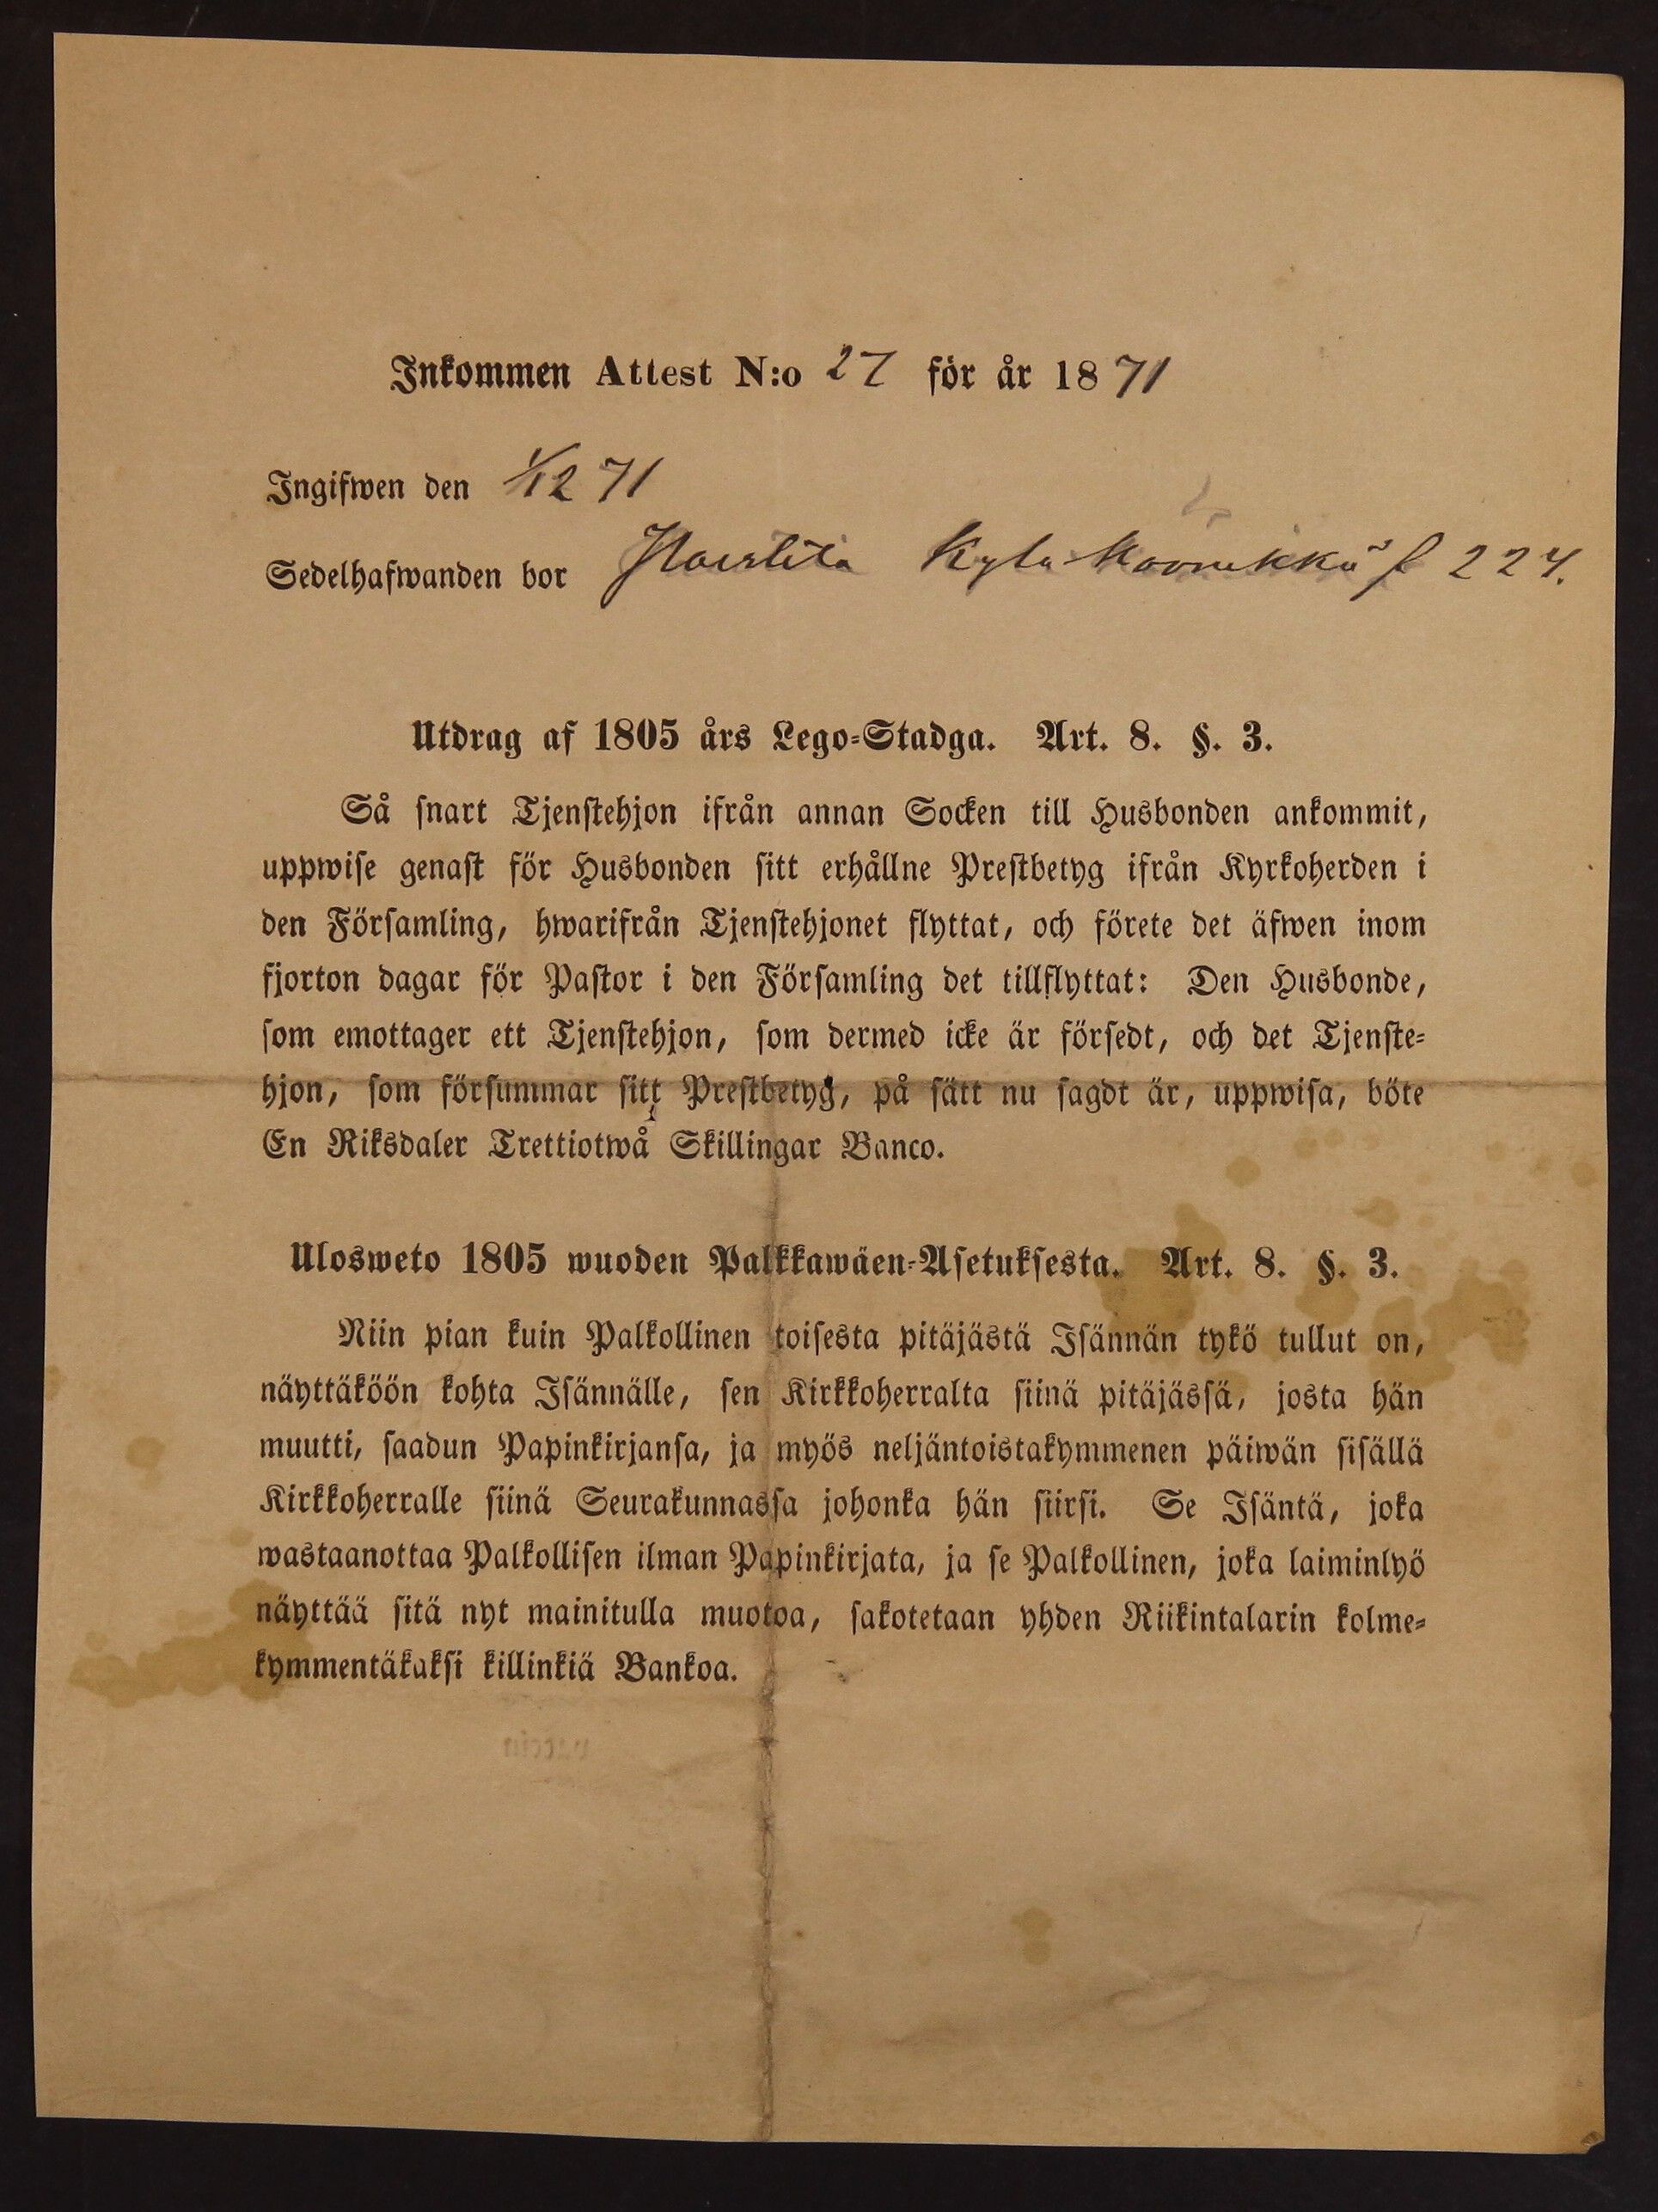 Inkommen Attest N:o 27 för år 1871
Ingifwen den 1/12 71
Sedelhafwanden bor Kyla 224.
Utdrag af 1805 års Lego-Stadga. Art. 8. §. 3.
Så snart Tjenstehjon ifrån annan Socken till Husbonden ankommit,
uppwise genast för Husbonden sitt erhållne Prestbetyg ifrån Kyrkoherden i
den Församling, hwarifrån Tjenstehjonet flyttat, och förete det äfwen inom
fjorton dagar för Pastor i den Församling det tillflyttat: Den Husbonde,
som emottager ett Tjenstehjon, som dermed icke är försedt, och det Tjenste-
hjon, som försummar sitt Prestbetyg, på sätt nu sagdt är, uppwisa, böte
En Riksdaler Trettiotwå Skillingar Banco.
Ulosweto 1805 wuoden Palkkawäen-Asetuksesta. Art. 8. §. 3.
Niin pian kuin Palkollinen toisesta pitäjästä Isännän tykö tullut on,
näyttäköön kohta Isännälle, sen Kirkkoherralta siinä pitäjässä, josta hän
muutti, saadun Papinkirjansa, ja myös neljäntoistakymmenen päiwän sisällä
Kirkkoherralle siinä Seurakunnassa johonka hän siirsi. Se Isäntä, joka
wastaanottaa Palkollisen ilman Papinkirjata, ja se Palkollinen, joka laiminlyö
näyttää sitä nyt mainitulla muotoa, sakotetaan yhden Riikintalarin kolme-
kymmentäkaksi killinkiä Bankoa.